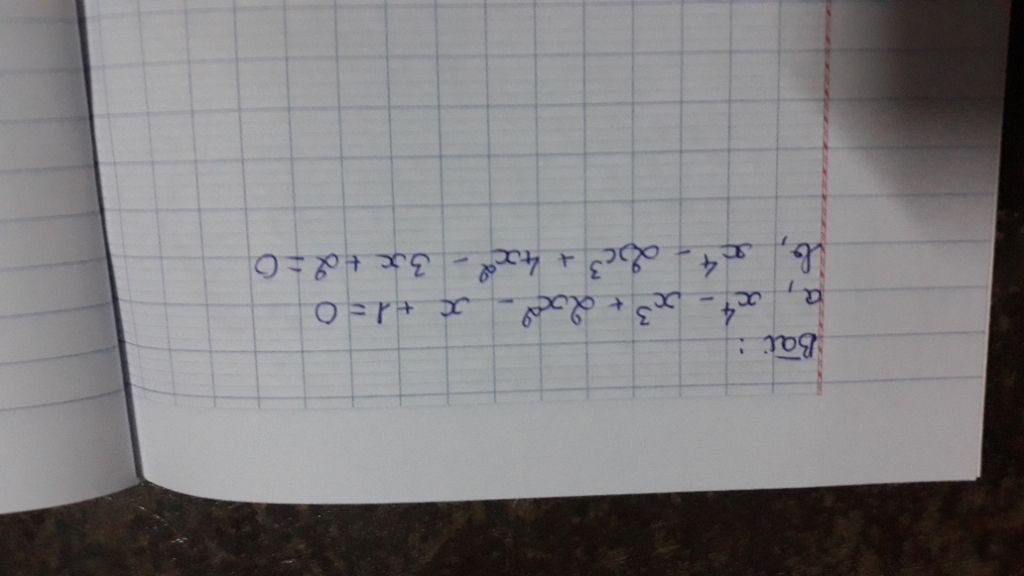 Bài :
a, x⁴ - x³ + 2x² - x + 1 = 0
b, x⁴ - 2x³ + 4x² - 3x + 2 = 0